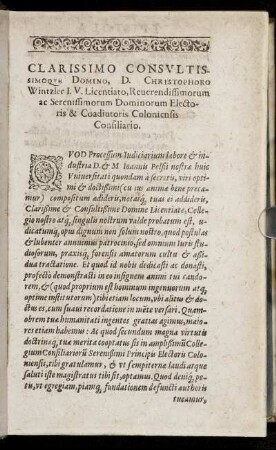 CLARISSIMO CONSVLTIS-
SIMOQVE DOMINO, D. CHRISTOPHORO
Wintzler I. V. Licentiato, Reuerendissimorum
ac Serenissimorum Dominorum Electo-
ris & Coadiutoris Coloniensis
Consiliario.
QVOD Processum Iudiciarium labore & in-
dustria D. & M. Ioannis Pelsii nostra huic
Vniuersitati quondam à secretis, viri opti-
mi & doctissimi (cu ius animæ bene preca-
mur) compositum adsideri, notasq́, tuas ei addideris,
Clarissime & Consultissime Domine Licentiate, Colle-
gio nostro atq́, singulis nostrum valde probatum est, iu-
dicatumq́, opus dignum non solum nostro, quod postulas
& lubenter annuimus patrocinio, sed omnium Iuris studi-
diosorum, praxisq́, forensis amatorum cultu & assi-
dua tractatione. Et quod id nobis dedicasti ac donasti,
profectò demonstrasti in eo insignem animi tui cando-
rem, & (quod proprium est hominum ingenuorum atq́,
optime institutorum) tibi etiam locum, vbi alitus & do-
ctus es, cum suaui recordatione in mẽte versari. Quam-
obrem tuæ humanitati ingentes gratias agimus, maio-
res etiam habemus: Ac quod secundum magna virtutis
doctrinæq́, tuæ merita cooptatus sis in amplissimũ Col-
legium Consiliariorũ Serenissimi Principis Electoris Colo-
niensis, tibi gratulamur, & vt sempiterna laudi atque
saluti iste magistratus tibi sit, aptamus. Quod deniq́, pe-
tu, vt egregiam, piamq́, fundationem defuncti authoris
tueamur,